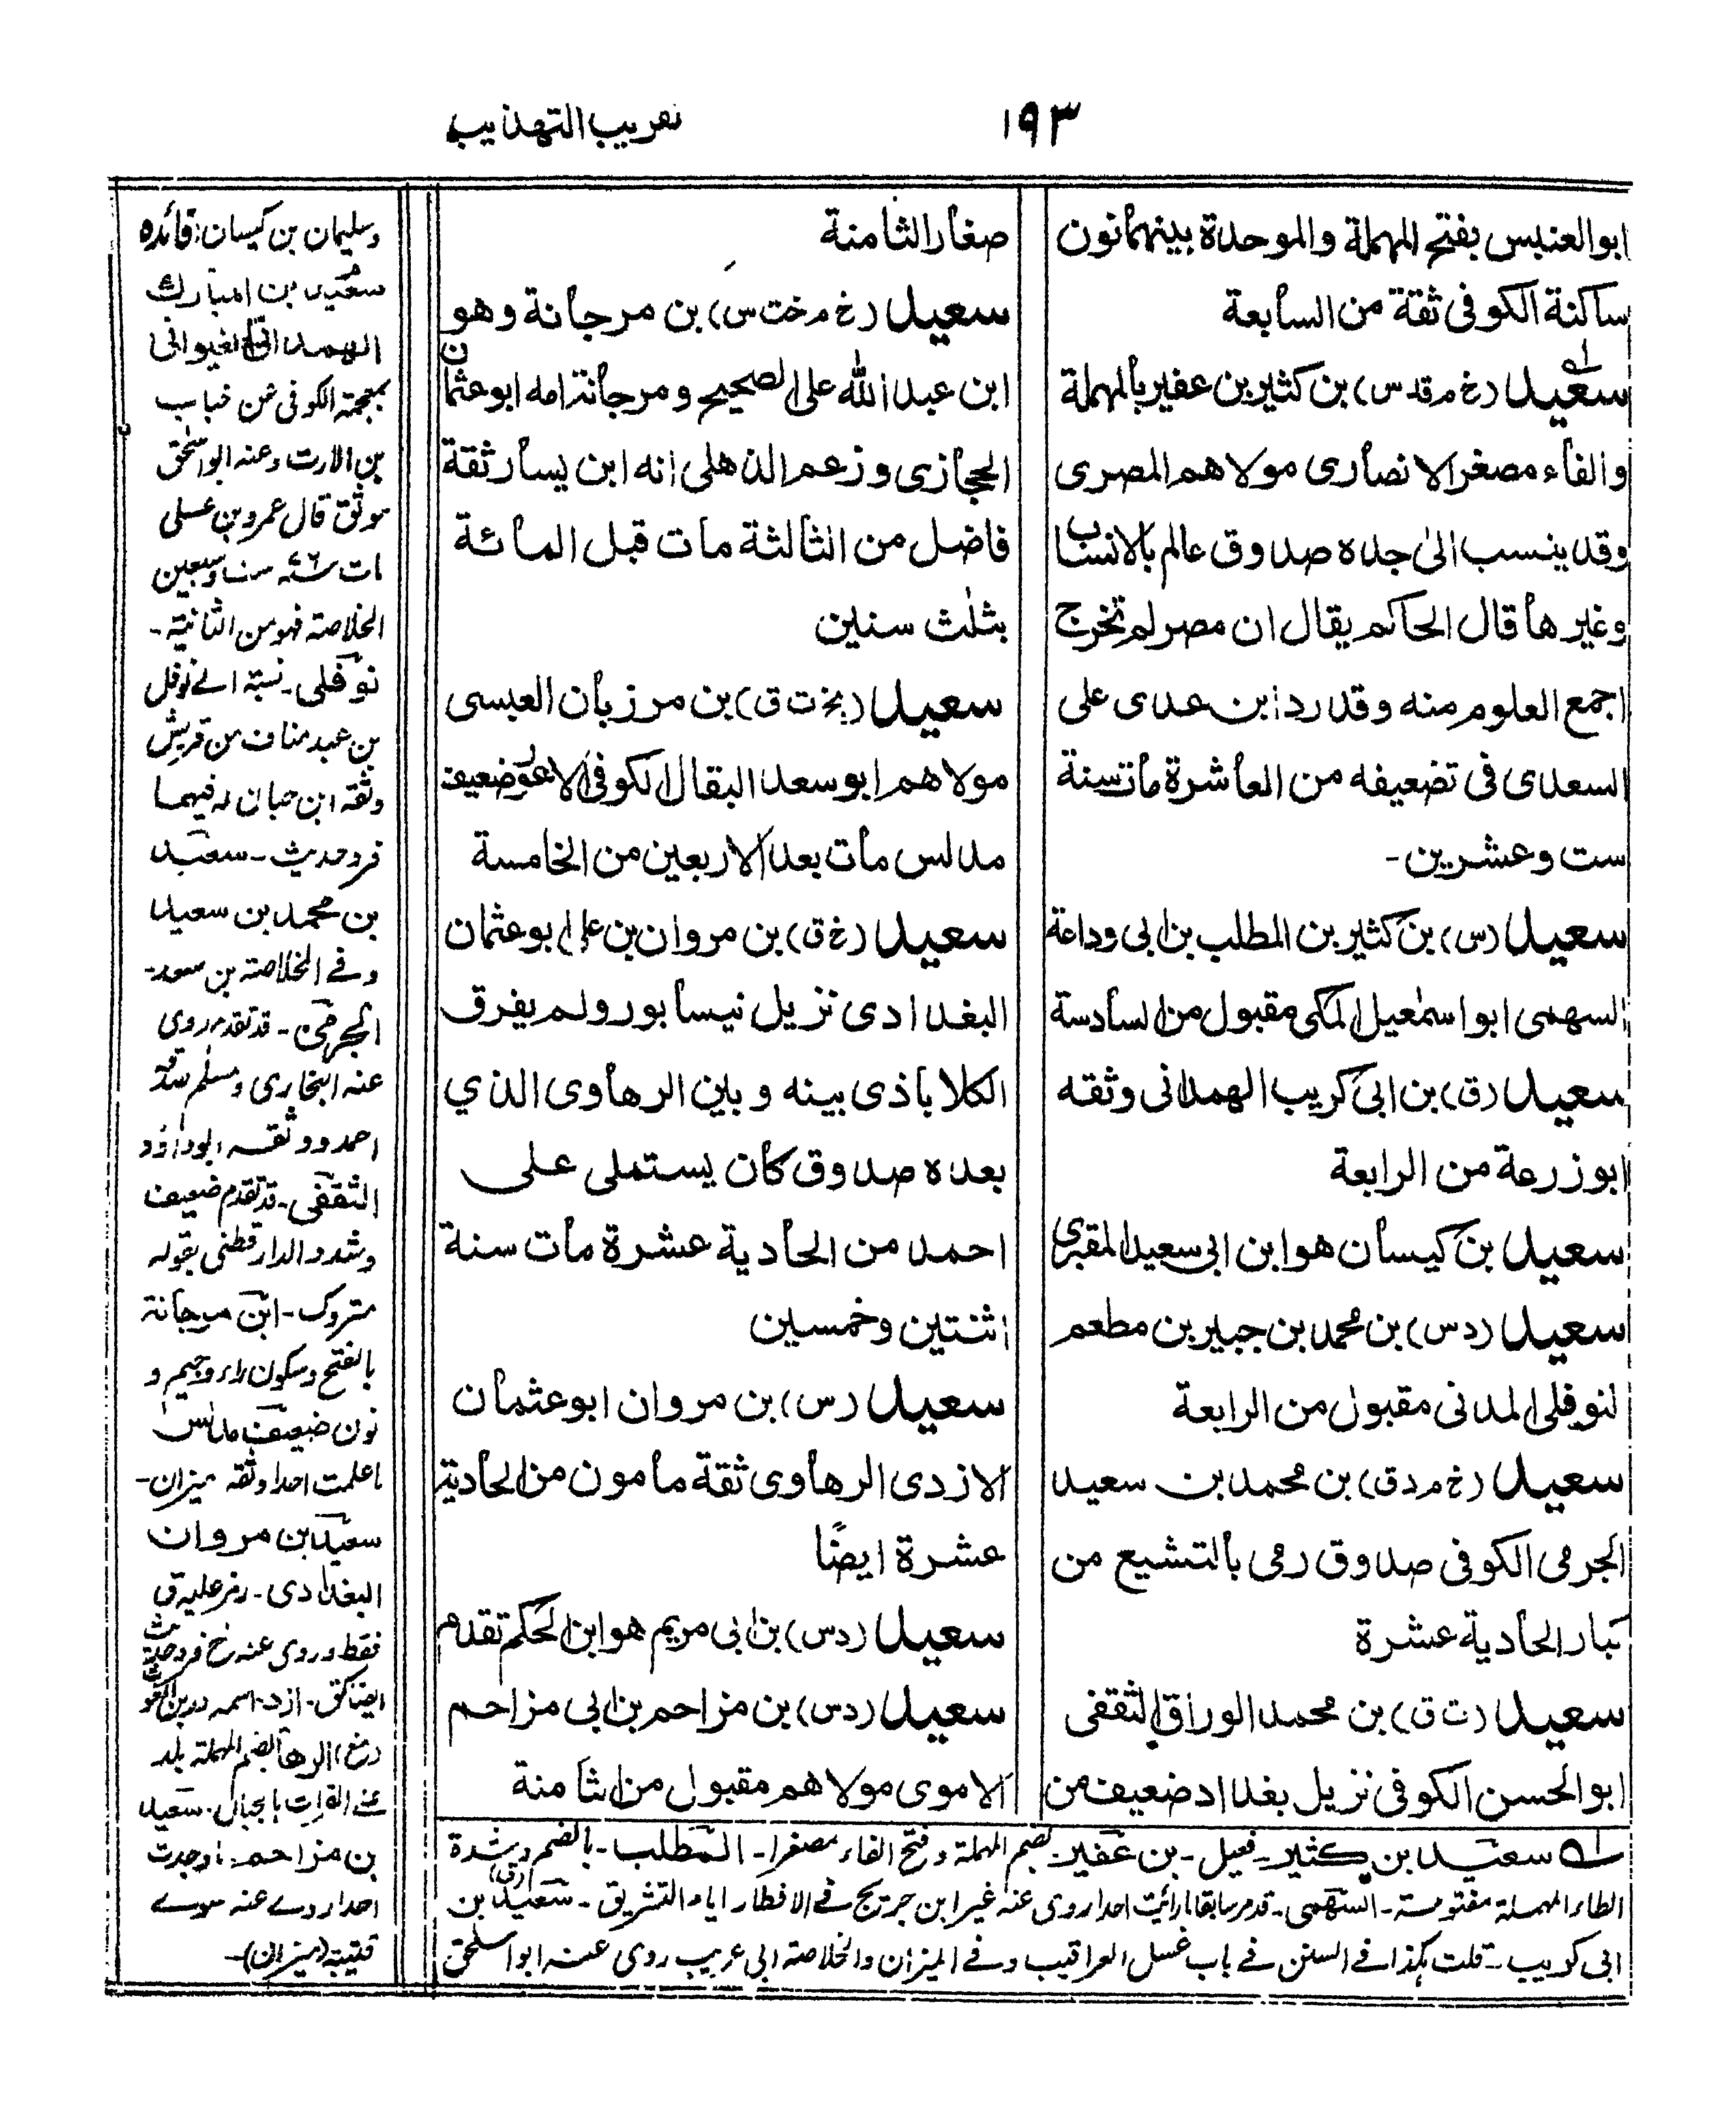 تقريب التهذيب
١٩٣
ابوالعنبس بفتح المهملة والموحدة بينهما نون
ساكنة الكوفى ثقة من السابعة
سعيد (خ م قد س) بن كثير بن عفير بالمهملة
والفاء مصغر الانصارى مولاهم المصرى
وقد ينسب الى جده صدوق عالم بالانساب
وغيرها قال الحاكم يقال ان مصر لم تخرج
اجمع العلوم منه وقد رد ابن عدى على
السعدى فى تضعيفه من العاشرة مات سنة
ست وعشرين-
سعيد (س) بن كثير بن المطلب بن ابى وداعة
السهمى ابو اسمٰعيل المكى مقبول من السادسة
سعيد (ق) بن ابى كريب الهمدانى وثقه
ابو زرعة من الرابعة
سعيد بن كيسان هو ابن ابى سعيد المقبرى
سعيد (د س) بن محمد بن جبير بن مطعم
لنوفلى المدنى مقبول من الرابعة
سعيد (خ م د ق) بن محمد بن سعيد
الجرمى الكوفى صدوق رمى بالتشيع من
كبار الحادية عشرة
سعيد (ت ق) بن محمد الوراق الثقفى
ابوالحسن الكوفى نزيل بغداد ضعيف من
صغار الثامنة
سعيد (خ م خت س) بن مرجانة وهو
ابن عبد الله على الصحيح ومرجانة امه ابو عثمان
الحجازى وزعم الذهلى انه ابن يسار ثقة
فاضل من الثالثة مات قبل المائة
بثلث سنين
سعيد (بخ ت ق) بن مرزبان العبسى
مولاهم ابو سعد البقال الكوفى الاعور ضعيف
مدلس مات بعد الاربعين من الخامسة
سعيد (خ ق) بن مروان بن على ابو عثمان
البغدادى نزيل نيسابور ولم يفرق
الكلاباذى بينه وبين الرهاوى الذي
بعده صدوق كان يستملى على
احمد من الحادية عشرة مات سنة
اثنتين وخمسين
سعيد (س) بن مروان ابو عثمان
الازدى الرهاوى ثقة مامون من الحادية
عشرة ايضًا
سعيد (د س) بن ابى مريم هو ابن الحكم تقدم
سعيد (د س) بن مزاحم بن ابى مزاحم
الاموى مولاهم مقبول من الثامنة
وسليمان بن كيسان: فائده
سعيد بن المبارك
الهمدانى الخيوانى
بمعجمة الكوفى عن خباب
بن الارت وعنه ابو اسحٰق
موثق قال عمرو بن على
مات ستا وسبعين
الخلاصة فهو من الثانية-
نوفلى- نسبة الے نوفل
بن عبد مناف من قريش
وثقه ابن حبان له فيهما
فرد حديث- سعيد
بن محمد بن سعيد
وفے الخلاصة بن سعد-
الجرمى- قد تقدم روى
عنه البخارى ومسلم صدقه
احمد ووثقه ابوداؤد
الثقفى- قد تقدم ضعيف
وشدد الدارقطنى بقوله
متروك- ابن مرجانة
بالفتح وسكون راء وجيم و
نون ضعيف مدلس
ما علمت احدا وثقه ميزان-
سعيد بن مروان
البغدادى- رمز عليه ق
فقط وروى عنه خ فرد حديث
ازد- اسمه
الرها بضم المهملة بلد
سعيد
بن مزاحم- ما وجدت
احدا روے عنه سوے
قتيبة (ميزان)-
سعيد بن كثير- فعيل- بن عفير بضم المهملة وفتح الفاء مصغرا- المطلب- بالضم وشدة
الطاء المهملة مفتوحة- السهمى- قد مر سابقا ما رائيت احدا روى عنه غير ابن جريج فے الافطار ايام التشريق- سعيد (ق) بن
ابى كريب- قلت هكذا فے السنن فے باب غسل العراقيب وفے الميزان والخلاصة ابى كريب روى عنه ابو اسحٰق